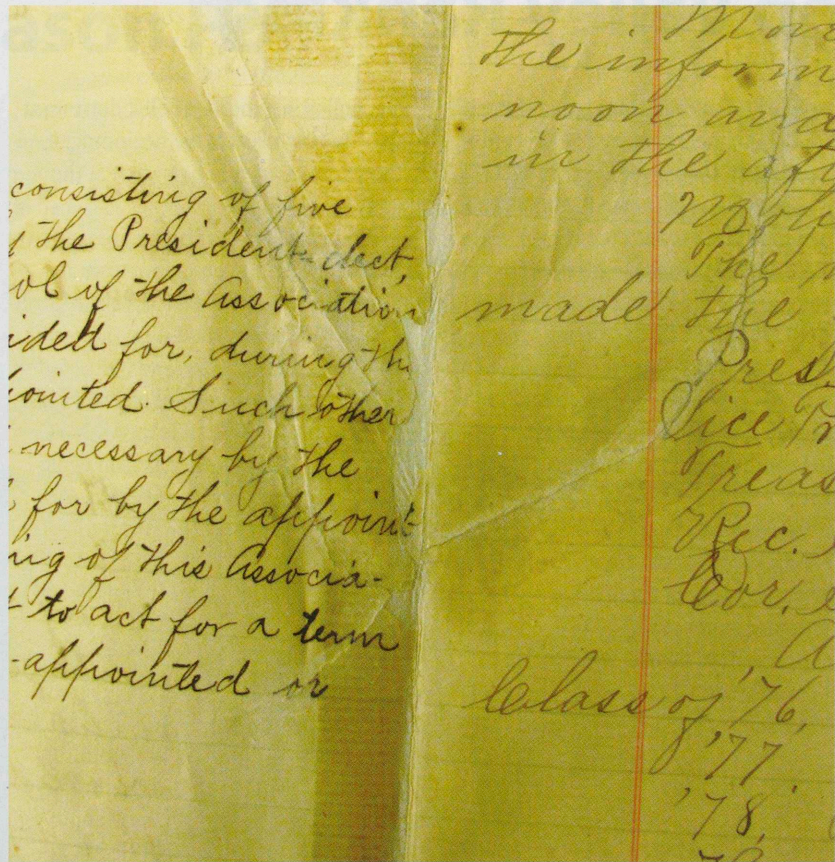 consisting of five
the President-elect,
ol of the Association
ided for, during the
ointed. Such other
necessary by the
for by the appoint-
ng of this Associa-
to act for a term
-appointed or
the inform
noon and
in the aft
The
made the
Pres
Vice Pr
Treas
Rec.
Cor.
Class of '76,
'77
'78,